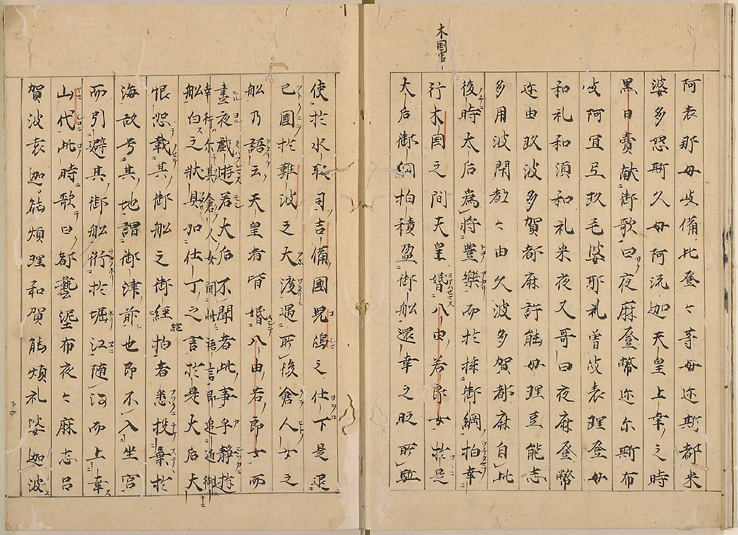 木国官
阿袁那母岐備比登々等母迩斯都米
婆多怒斯久母阿流迦天皇上幸之時
黒日賣献御歌曰夜麻登幣迩尓斯布
岐阿冝弖玖毛婆那礼曽岐袁理登母
和礼和須和礼米夜又哥曰夜麻登幣
迩由玖波多賀都麻許能母理豆能志
多用波閇都々由久波多賀都麻自此
後時太后為将豊樂而於採御綱柏幸
行木国之間天皇婚八由若郎女於是
大后御綱柏積盈御船還幸之時所駈
使於水取司吉備國児嶋之仕丁是退
己國於難波之大渡遇所後倉人女之
船乃語云天皇者皆婚八由若郎女而
晝夜戯遊若大后不聞看此事乎静遊
幸行尓其倉人女聞此語言即追近御
船白之状具如仕丁之言於是大后大
恨怨載其御船之御綱柏者悉投棄於
海故号其地謂御津前也即不入坐宮
而引避其御船泝於堀江随河而上幸
山代此時歌曰都藝泥布夜々麻志呂
賀波袁迦波能煩理和賀能煩礼婆迦波